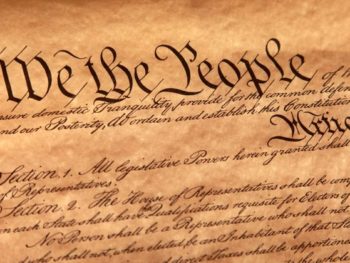 We the People of th
sure domestic Tranquility, provide for the common defen
and our Posterity, do ordain and establish this Constitution
Article
Section 1. All legislative Powers herein granted shall
of Representatives.
Section 2. The House of Representatives shall be comp
in each State shall have Qualifications requisite for Electors of
No Person shall be a Representative who shall not
shall not, when elected, be an Inhabitant of that State
direct Taxes shall be apportione